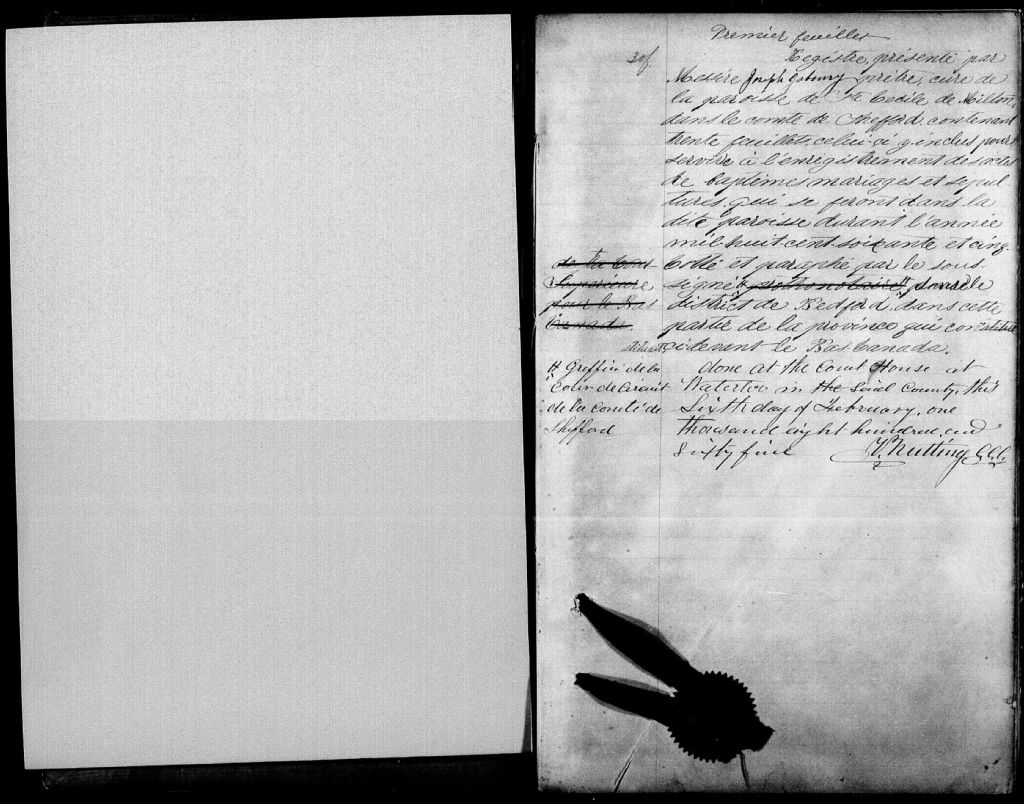 Premier feuillet
30f.
Registre, présenté par
Messire Joseph prêtre, curé de
la paroisse de Ste Cecile de Milton,
dans le comté de Shefford, contenant
trente feuillets, celui-ci y inclus pour
servir à l'enregistrement des actes
de baptêmes mariages et sépul-
tures, qui se feront dans la
dite paroisse durant l'année
mil-huit cent-soixante et cinq.
Cotté et paraphé par le sous-
signé protonotaire pour le
district de Bedford, dans cette
partie de la province qui constituait
ci-devant le Bas Canada.
de la Cour
Supérieure
pour le Bas
Canada.
H Greffier de la
Cour de Circuit
de la Comté de
Shefford
done at the Court House at
Waterloo in the Said County, this
Sixth day of February, one
thousand eight hundred and
Sixty five
Nutting C.C.C.